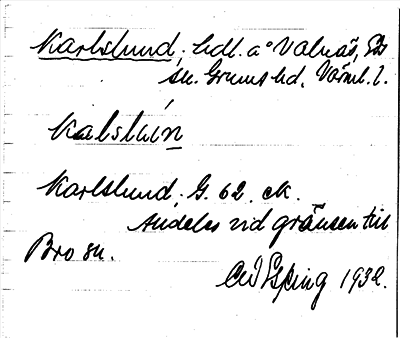 Karlslund, hdl. a° Valnäs,
sn. Grums hd, Värml. l.
Kalslún
Karlslund, G. 62. ek.
Sydeles vid gränsen till
Bro sn.
1932.